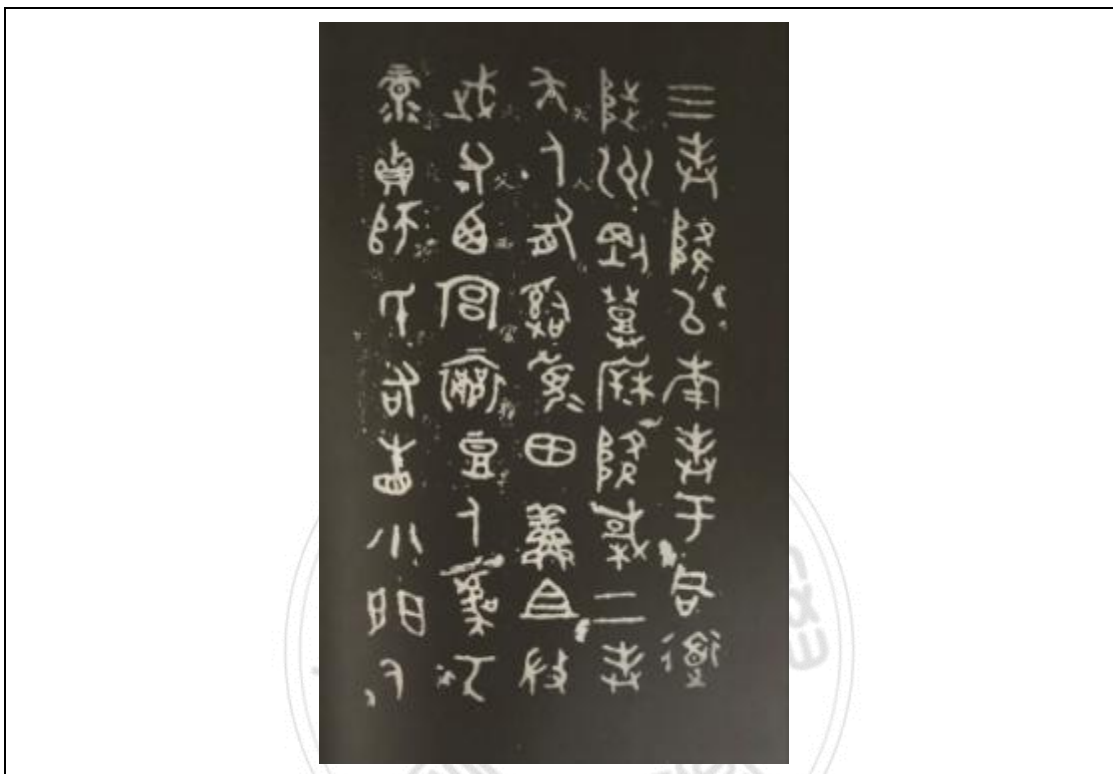 三封降以南封于同道
陟州剛登降棫二封
夨人有𤔲眉田鮮且微
武父西宮襄豆人虞丂
彔貞師氏右眚小門人